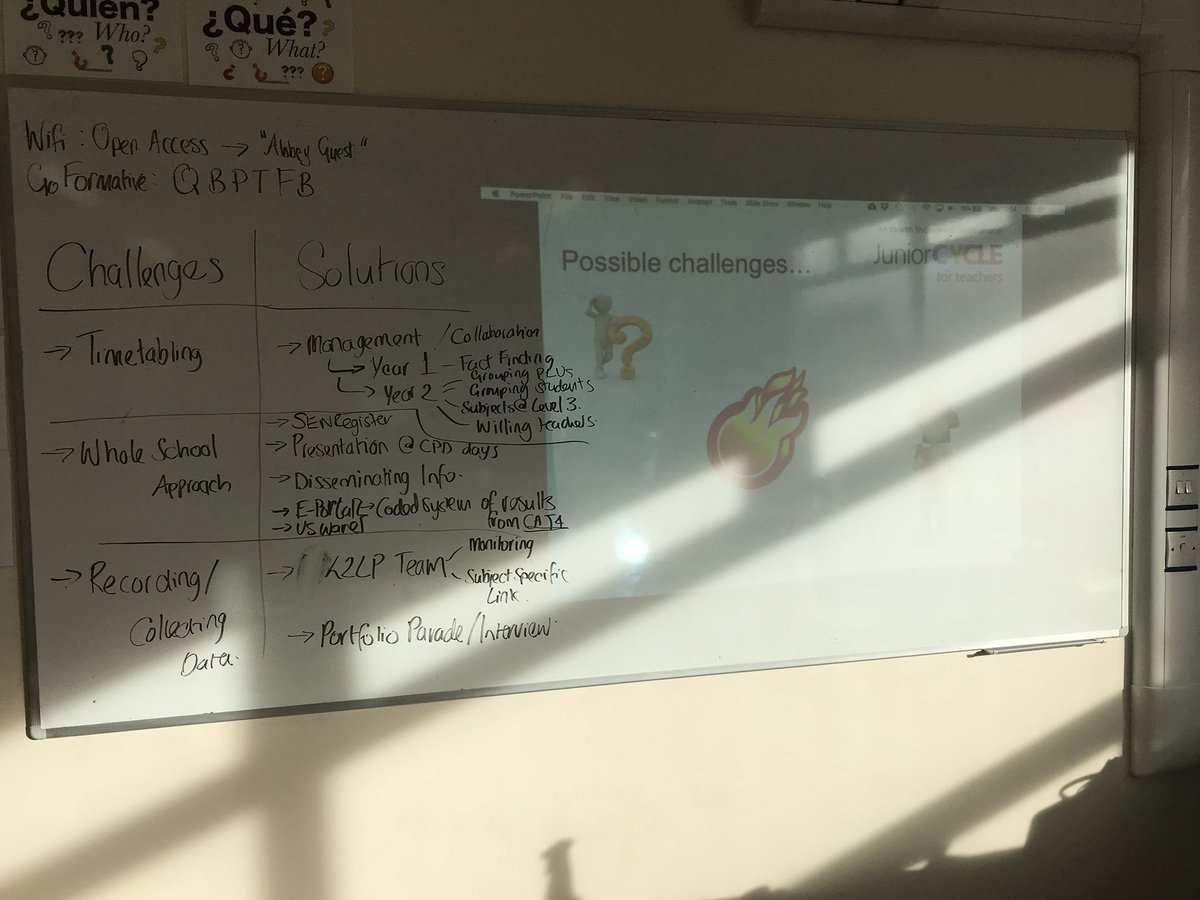 ¿Quién?
??? Who?
?
¿Qué?
What?
???
Wifi : Open Access → "Abbey Guest"
Go Formative: QBPTFB
Challenges
Solutions
→ Timetabling
→ Management / Collaboration
→ Year 1 - Fact Finding
Grouping PLUs
→ Year 2 = Grouping students
Subjects @ Level 3.
Willing teachers.
→ Whole School
Approach
→ SEN Register
→ Presentation @ CPD days
→ Disseminating Info.
→ E-Portal → Coded system of results
from CAT4
→ VSware
→ Recording/
Collecting
Data.
→ L2LP Team
Monitoring
Subject Specific
Link.
→ Portfolio Parade/Interview.
PowerPoint File Edit View Insert Format Arrange Tools Slide Show Window Help
Possible challenges...
JuniorCYCLE
for teachers